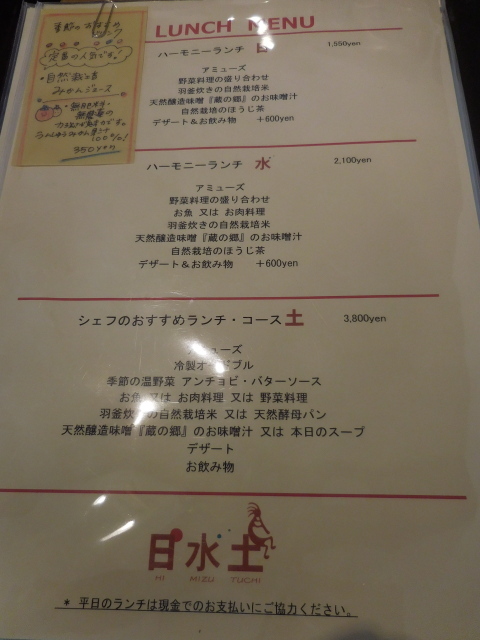 季節のおすすめ
ドリンク
定番の人気です!
・自然栽培
みかんジュース
無肥料
100%!
350yen
LUNCH MENU
ハーモニーランチ 日 1,550yen
アミューズ
野菜料理の盛り合わせ
羽釜炊きの自然栽培米
天然醸造味噌『蔵の郷』のお味噌汁
自然栽培のほうじ茶
デザート&お飲み物 +600yen
ハーモニーランチ 水 2,100yen
アミューズ
野菜料理の盛り合わせ
お魚 又は お肉料理
羽釜炊きの自然栽培米
天然醸造味噌『蔵の郷』のお味噌汁
自然栽培のほうじ茶
デザート&お飲み物 +600yen
シェフのおすすめランチ・コース 土 3,800yen
アミューズ
冷製オードブル
季節の温野菜 アンチョビ・バターソース
お魚 又は お肉料理 又は 野菜料理
羽釜炊きの自然栽培米 又は 天然酵母パン
天然醸造味噌『蔵の郷』のお味噌汁 又は 本日のスープ
デザート
お飲み物
日水土
HI MIZU TUCHI
* 平日のランチは現金でのお支払いにご協力ください。